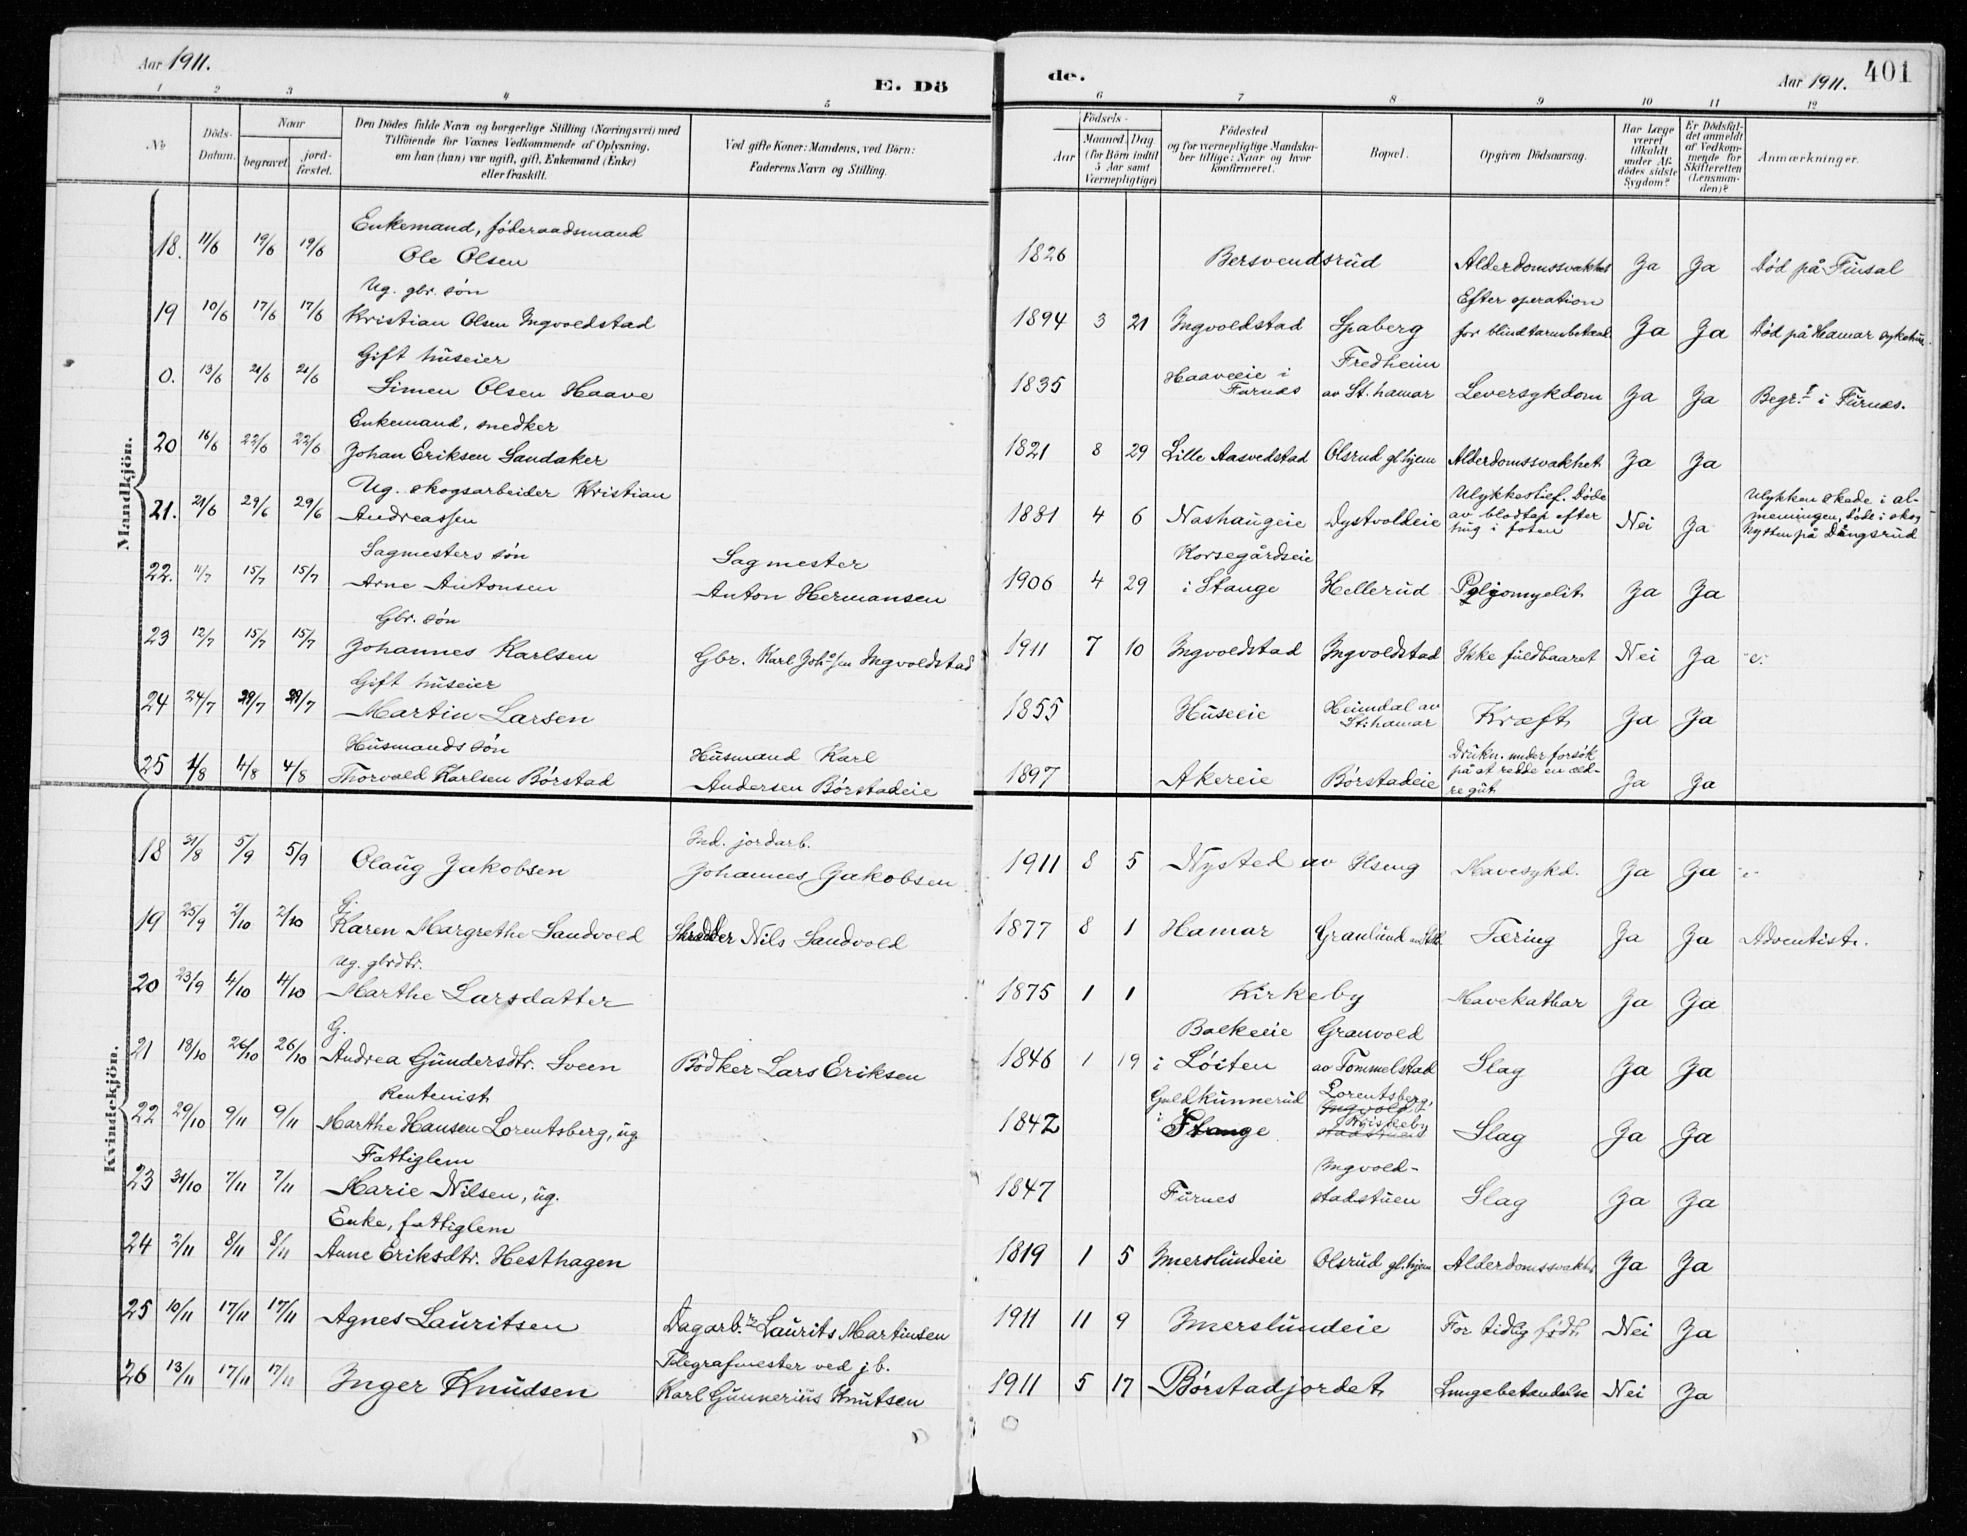 Aar 1911.
E. Dö
de.
Aar 1911.
401
1 2 3 4 5 6 7 8 9 10 11 12
No
Döds-
Datum.
Naar
begravet.
jord-
fæstet.
Den Dödes fulde Navn og borgerlige Stilling (Næringsvei) med
Tilföiende for Voxnes Vedkommende af Oplysning,
om han (hun) var ugift, gift, Enkemand (Enke)
eller fraskilt.
Ved gifte Koner: Mandens, ved Börn:
Faderens Navn og Stilling.
Födsels-
Aar
Maaned. Dag
(for Börn indtil
5 Aar samt
Værnepligtige)
Födested
og for værnepligtige Mandska-
ber tillige: Naar og hvor
konfirmeret.
Bopæl.
Opgiven Dödsaarsag.
Har Læge
været
tilkaldt
under Af-
dödes sidste
Sygdom?
Er Dödsfal-
det anmeldt
af Vedkom-
mende for
Skifteretten
(Lensman-
den)?
Anmærkninger.
Mandkjön.
Enkemand, föderaadsmand
18. 11/6 19/6 19/6 Ole Olsen 1826 Bersvendsrud Alderdomssvakhet Ja Ja Död på Finsal
Ug. gbr. sön
Efter operation
19 10/6 17/6 17/6 Kristian Olsen Ingvoldstad 1894 3 21 Ingvoldstad Spaberg for blindtarmbetænd Ja Ja Död på Hamar sykehus.
Gift huseier
Haaveeie i Fredheim
0. 13/6 21/6 21/6 Simen Olsen Haave 1835 Furnes av St. hamar Leversykdom Ja Ja Begr.t i Furnes.
Enkemand, snedker
20 16/6 22/6 22/6 Johan Eriksen Sandaker 1821 8 29 Lille Aasvedstad Olsrud glhjem Alderdomssvakhet Ja Ja
Ug. skogsarbeider Kristian
21. 21/6 29/6 29/6 Andreassen 1881 4 6 Nashaugeie Dystvoldeie Ulykkestilf. Döde
av blodtap efter
hug i foten Nei Ja Ulykken skede i al-
meningen, döde i skog
hytten på Dengsrud
Sagmesters sön Sagmester Korsegårdseie
22. 11/7 15/7 15/7 Arne Antonsen Anton Hermansen 1906 4 29 i Stange Hellerud Poliomyelit Ja Ja
Gbr. sön
23 12/7 15/7 15/7 Johannes Karlsen Gbr. Karl Johssen Ingvoldstad 1911 7 10 Ingvoldstad Ingvoldstad Ikke fuldbaaret Nei Ja
Gift huseier
24 24/7 29/7 29/7 Martin Larsen 1855 Huseeie Heimdal av
St. hamar Kræft Ja Ja
Husmands sön Husmand Karl
25 1/8 4/8 4/8 Thorvald Karlsen Börstad Andersen Börstadeie 1897 Akereie Börstadeie Drukn. under forsök
på at redde en æld-
re gut Ja Ja
Kvindekjön.
Ind. jordarb.
18 31/8 5/9 5/9 Olaug Jakobsen Johannes Jakobsen 1911 8 5 Nysted av Ilseng Mavesykd. Ja Ja
G.
19 25/9 2/10 2/10 Karen Margrethe Sandvold Skrædder Nils Sandvold 1877 8 1 Hamar Granlund Tæring Ja Ja Adventist.
Ug. gbrdtr.
20 23/9 4/10 4/10 Marthe Larsdatter 1875 1 1 Kirkeby Mavekathar Ja Ja
G. Balkeeie Granvold
21 18/10 26/10 26/10 Andrea Gundersdtr. Sveen Bödker Lars Eriksen 1846 1 19 i Löiten av Tommelstad Slag Ja Ja
Rentenist Guldkunnerud Lorentsberg,
22 29/10 9/11 9/11 Marthe Hansen Lorentsberg, ug. 1842 i Stange Slag Ja Ja
Fattiglem Ingvold-
23 31/10 7/11 7/11 Marie Nilsen, ug. 1847 Furnes stadstuen Slag Ja Ja
Enke, fattiglem
24 2/11 8/11 8/11 Anne Eriksdtr. Hesthagen 1819 1 5 Imerslundeie Olsrud gl.hjem Alderdomssvakhet Ja Ja
25 10/11 17/11 17/11 Agnes Lauritsen Dagarb. Laurits Martinsen 1911 11 9 Imerslundeie For tidlig född Nei Ja
Telegrafmester ved jb.
26 13/11 17/11 17/11 Inger Knudsen Karl Gunnerius Knutsen 1911 5 17 Börstadjordet Lungebetændelse Nei Ja